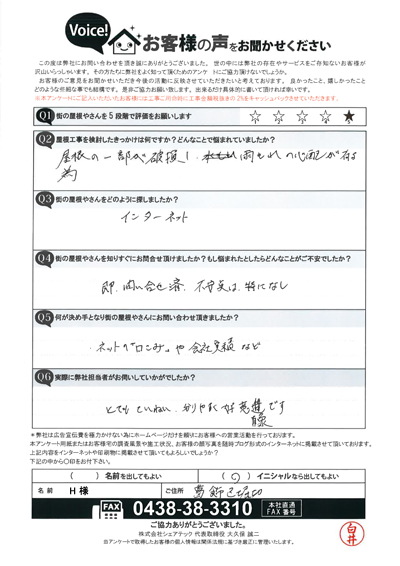 Voice!
お客様の声をお聞かせください
この度は弊社にお問い合わせを頂き誠にありがとうございました。世の中には弊社の存在やサービスをご存知ないお客様が
沢山いらっしゃいます。その方たちに弊社をよく知って頂くためのアンケートにご協力頂けないでしょうか。
お客様のご意見をお聞かせいただき今後の活動に反映させていただきたいと考えております。良かったこと、嬉しかったこと
どのような些細な事でも結構です。是非ご協力お願い致します。出来るだけ具体的に書いて頂ければ幸いです。
※本アンケートにご記入いただいたお客様には工事ご用命時に工事金額税抜きの2%をキャッシュバックさせていただきます。
Q1 街の屋根やさんを5段階で評価お願いします ☆ ☆ ☆ ☆ ★
Q2 屋根工事を検討したきっかけは何ですか?どんなことで悩まれていましたか?
屋根の一部が破損し、雨もれの心配が有る
為
Q3 街の屋根やさんをどのように探しましたか?
インターネット
Q4 街の屋根やさんを知りすぐにお問合せ頂けましたか?もし悩まれたとしたらどんなことがご不安でしたか?
即、問い合せ済、不安点は特になし
Q5 何が決め手となり街の屋根やさんにお問い合わせ頂きましたか?
ネットや口コミや会社実績など
Q6 実際に弊社担当者がお伺いしていかがでしたか?
とてもていねい、
です
*弊社は広告宣伝費を極力かけない為にホームページだけを頼りにお客様への営業活動を行っております。
本アンケート用紙またはお客様宅の調査風景や施工状況、お客様の顔写真を随時ブログ形式のインターネットに掲載させて頂いております。
上記内容をインターネットや印刷物に掲載させて頂いてもよろしいでしょうか?
下記の中から〇印をお付下さい。
( )名前を出してもよい (〇)イニシャルなら出してもよい
名前 H様 ご住所 葛飾区堀切
FAX 0438-38-3310 本社直通 FAX番号
ご協力ありがとうございました。
株式会社シェアテック 代表取締役 大久保 誠二
※アンケートで取得したお客様の個人情報は関係法規に基づき厳正に管理いたします。
白井